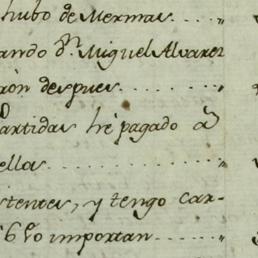 hubo de Mermas .... „
ando Dⁿ. Miguel Alvarez
ron despues ..... „
artidas hé pagado â
ellas ......... „
stentes, y tengo car-
importan .... „